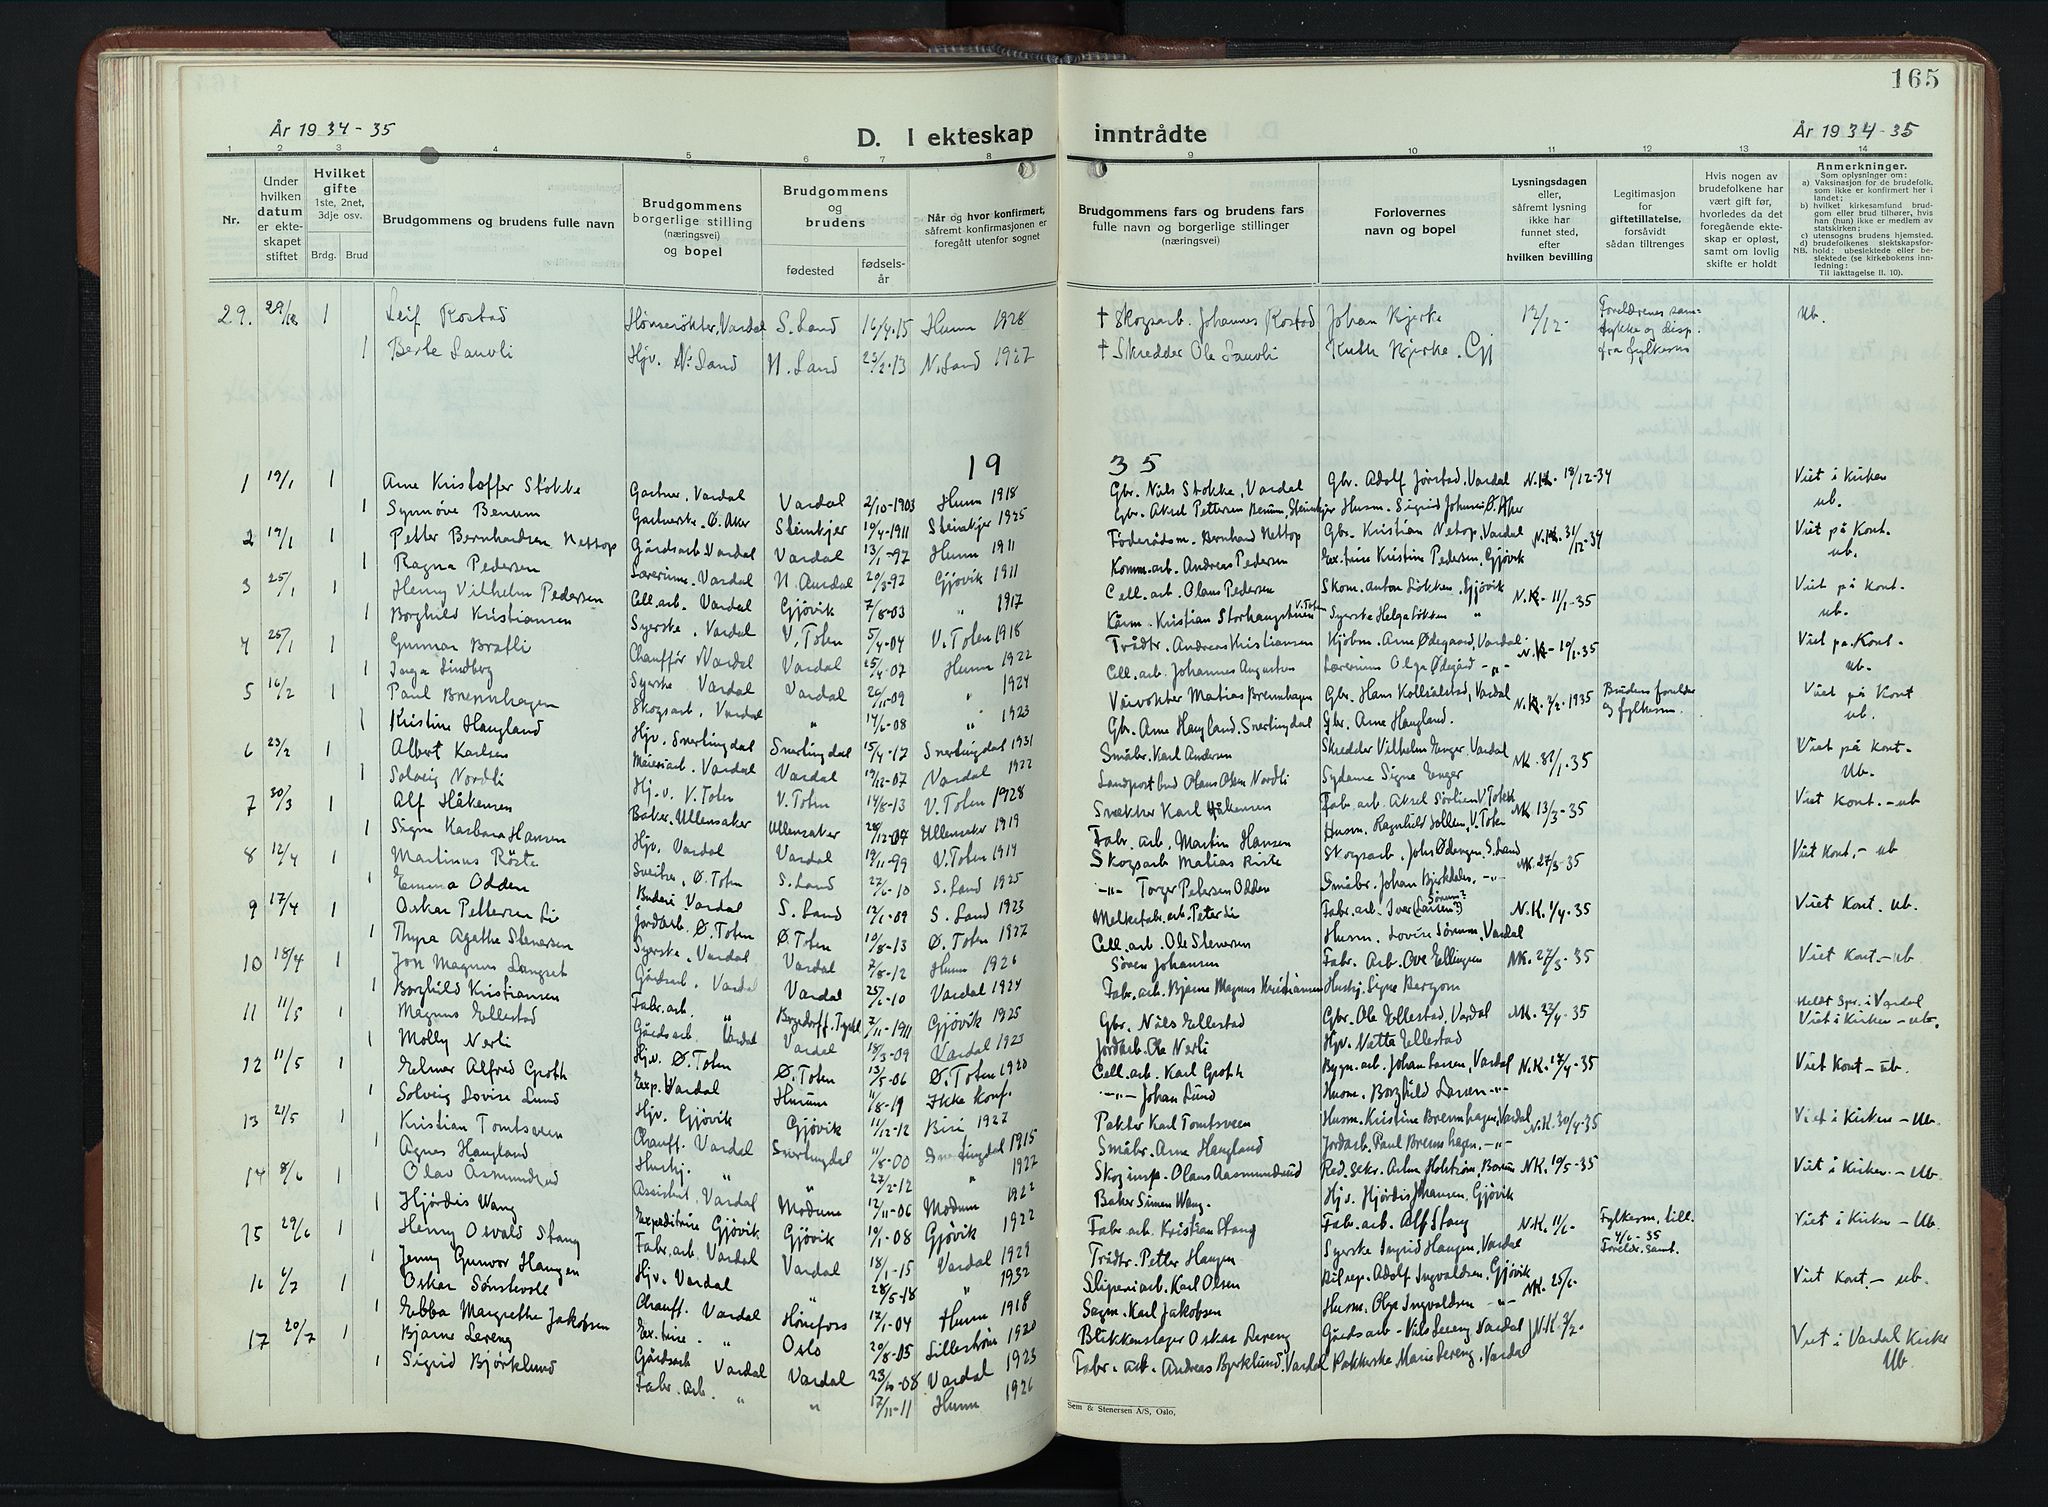 165
År 1934-35
D. I ekteskap inntrådte
År 1934-35
1 2 3 4 5 6 7 8 9 10 11 12 13 14
Nr.
Under hvilken datum er ekteskapet stiftet
Hvilket gifte 1ste, 2net, 3dje osv.
Brdg. Brud
Brudgommens og brudens fulle navn
Brudgommens borgerlige stilling (næringsvei) og bopel
Brudgommens og brudens
fødested
fødselsår
Når og hvor konfirmert, såfremt konfirmasjonen er foregått utenfor sognet
Brudgommens fars og brudens fars fulle navn og borgerlige stillinger (næringsvei)
Forlovernes navn og bopel
Lysningsdagen eller, såfremt lysning ikke har funnet sted, efter hvilken bevilling
Legitimasjon for giftetillatelse, forsåvidt sådan tiltrenges
Hvis nogen av brudefolkene har vært gift før, hvorledes da det foregående ekteskap er opløst, samt om lovlig skifte er holdt
Anmerkninger.
Som oplysninger om:
a) Vaksinasjon for de brudefolk, som ikke er konfirmert her i landet;
b) hvilket kirkesamfund brudgom eller brud tilhører, hvis han (hun) ikke er medlem av statskirken;
c) utensogns brudens hjemsted.
d) brudefolkenes slektskapsforhold: ubeslektede eller beslektede (se kirkebokens innledning:
NB. Til iakttagelse II. 10).
29. 29/12 1 Leif Rostad Hønserøkter, Vardal S. Land 16/4.15 Hunn 1928 † Skogsarb. Johannes Rostad Johan Bjerke 12/12- Foreldrenes samtykke og disp. fra fylkesm. Ub.
1 Berte Sauvli Hjv. N. Land N. Land 23/2.13 N. Land 1927 † Skredder Ole Sauvli Ruth Bjerke. Gj
1935
1 19/1 1 Arne Kristoffer Stokke Gartner, Vardal Vardal 2/10-1903 Hunn 1918 Gbr. Nils Stokke, Vardal Gbr. Adolf Jørstad, Vardal N.K. 18/12-34 Viet i Kirken
1 Synnøve Benum Gartnerske. Ø. Aker Steinkjer 19/4-1911 Steinkjer 1925 Gbr. Aksel Pettersen Benum, Steinkjer Husm. Sigrid Ø. Aker ub.
2 19/1 1 Petter Bernhardsen Nettop Gårdsarb. Vardal Vardal 13/1-97 Hunn 1911 Føderådsm. Bernhard Nettop Gbr. Kristian Netop, Vardal N.K. 31/12-34 Viet på Kont.
1 Ragna Pedersen Vardal N. Aurdal 20/3-97 Gjøvik 1911 Komm. arb. Andreas Pedersen Kristine Pedersen, Gjøvik ub.
3 25/1 1 Henny Vilhelm Pedersen Cell. arb. Vardal Gjøvik 7/8-03 " 1917 Cell. arb. Olaus Pedersen Skom. Anton Løkken, Gjøvik N.K. 11/1-35 Viet på Kont.
1 Borghild Kristiansen Syerske. Vardal V. Toten 5/4-04 V. Toten 1918 Kristian V. Toten Syerske Helga Løkken " ub.
4 25/1 1 Gunnar Bratli Chauffør Vardal Vardal 25/4-07 Hunn 1922 Trådtr. Andreas Kristiansen Arne Ødegaard, Vardal N.K. 10/1-35 Viet på Kont.
1 Inga Lindberg Syerske. Vardal Vardal 26/11-09 " 1924 Cell. arb. Johannes Augustus Olga Ødegård -"- ub.
5 16/2 1 Paul Brennhagen Skogsarb. Vardal " 14/6-08 " 1923 Matias Brennhagen Gbr. Hans Vardal N.K. 2/2.1935 Brudens foreldre og fylkesm. Viet på Kont
1 Kristine Haugland Hjv. Snertingdal Snertingdal 15/4-17 Snertingdal 1931 Gbr. Arne Haugland. Snertingdal Gbr. Arne Haugland. ub.
6 23/2 1 Albert Karlsen Meieriarb. Vardal Vardal 19/12-07 Vardal 1922 Småbr. Karl Andersen Skredder Vilhelm Enger, Vardal N.K. -35 Viet på Kont.
1 Solveig Nordli Hj.v. V. Toten V. Toten 14/8-13 V. Toten 1928 Landpostbud Olaus Olsen Nordli Sydame Signe Enger Ub.
7 30/3 1 Alf Håkensen Baker, Ullensaker Ullensaker 28/12-07 Ullensaker 1919 Snekker Karl Håkensen Fab. arb. Aksel Sørlien V. Toten NK 13/3-35 Viet Kont. - ub
1 Signe Karbara Hansen Hjv. Vardal Vardal 19/11-99 V. Toten 1914 Fabr. arb. Martin Hansen Husm. Ragnhild V. Toten
8 12/4 1 Martinus Røste Sveitser, Ø. Toten S. Land 27/6-10 S. Land 1925 Skogsarb Matias Røste Skogsarb. Joh. Ødengen, S. Land NK. 27/3-35 Viet Kont. - ub
1 Emma Odden Budeie Vardal S. Land 12/1-09 S. Land 1923 -"- Torger Petersen Odden Småbr. Johan -"-
9 17/4 1 Oskar Pettersen Li Jordarb. Ø. Toten Ø. Toten 10/8-13 Ø. Toten 1927 Melkefabr. arb. Peter Lie Fabr. arb. Iver (Larsen?) Sørum? N.K. 1/4-35 Viet Kont. Ub.
1 Thyra Agathe Stenersen Syerske. Vardal Vardal 7/8-12 Hunn 1926 Cell. arb. Ole Stenersen Husm. Lovise Sørum, Vardal
10 18/4 1 Jon Magnus Langset Gårdsarb. Vardal Vardal 25/6-10 Vardal 1924 Søren Johansen Fabr. Arb. Ove Ellingsen NK. 27/3-35 Viet Kont. - ub
1 Borghild Kristiansen Fabr. arb. " 7/11-1911 Gjøvik 1925 Fabr. arb. Bjarne Magnus Kristiansen Hushj. Signe Bergom
11 11/5 1 Magnus Ellestad Gårdsarb Vardal Vardal 18/3-09 Vardal 1923 Gbr. Nils Ellestad Gbr. Ole Ellestad, Vardal NK. 23/4-35 i Vardal Viet i Kirken - ub.
1 Molly Nerli Hjv. Ø. Toten Ø. Toten 13/5-06 Ø. Toten 1920 Jordarb. Ole Nerli Hjv. Natta Ellestad
12 11/5 1 Elmer Alfred Groth Exp. Vardal Hurum 11/8-19 Ikke konf. Cell. arb. Karl Groth Bygn. arb. Johan Larsen, Vardal N.K. 17/4-35 Viet Kont - ub.
1 Solveig Lovise Lund Hjv. Gjøvik Gjøvik 11/12-12 Biri 1927 -"- Johan Lund Husm. Borghild Larsen -"-
13 21/5 1 Kristian Tomtsveen Chauff. Vardal Snertingdal 11/8-00 Snertingdal 1915 Pakter Karl Tomtsveen Husm. Kristine Brennhagen, Vardal N.K. 30/4-35 Viet i Kirken - Ub.
1 Agnes Haugland Hushj. " 27/2-12 " 1927 Småbr. Arne Haugland Jordarb. Paul Brennhagen. -"-
14 8/6 1 Olav Åsmundrud Assistent. Vardal Modum 12/11-06 Modum 1922 Skoginsp. Olaus Aasmundrud Red. sekr. Holstrøm, NK. 10/5-35 Viet i Kirken - Ub.
1 Hjørdis Wang Expeditrise Gjøvik Gjøvik 10/1-08 Gjøvik 1922 Baker Simen Wang. Hjv. Hjørdis Johansen, Gjøvik
15 29/6 1 Henny Osvald Stang Fabr. arb. Vardal Vardal 18/1-15 Vardal 1929 Fabr. arb. Kristian Stang Fabr. arb. Alf Stang N.K. 11/6- Fylkesm. till. 4/6-35 Foreldr. samt. Viet i Kirken - Ub.
1 Jenny Gunvor Haugen Hjv. Vardal " 28/5-18 " 1932 Trådtr. Petter Haugen Syerske Ingrid Haugen, Vardal
16 6/7 1 Oskar Sønstevold Chauff. Vardal Hønefoss 17/1-04 Hunn 1918 Sliperiarb. Karl Olsen Adolf Ingvaldsen, Gjøvik NK. 25/6- Viet Kont. - ub.
1 Ebba Margrethe Jakobsen Ex.trise " Oslo 20/8-05 Lillestrøm 1920 Sagm. Karl Jakobsen Husm. Olga Ingvaldsen -"-
17 20/7 1 Bjarne Lereng Gårdsarb Vardal Vardal 23/10-08 Vardal 1923 Blikkenslager Oskar Lereng Gårdsarb - Nils Lereng Vardal N.K. 3/2- Viet i Vardal Kirke
1 Sigrid Bjørklund Fabr. arb. " " 17/11-11 Hunn 1926 Fabr. arb. Andreas Bjørklund. Vardal Pakkerske Marie Lereng, Vardal Ub.
Sem & Stenersen A/S, Oslo.